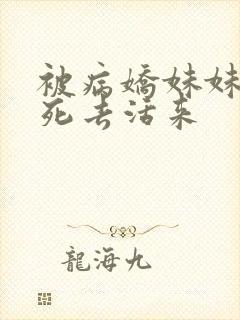 被病嬌妹妹
死去活来
龍海九